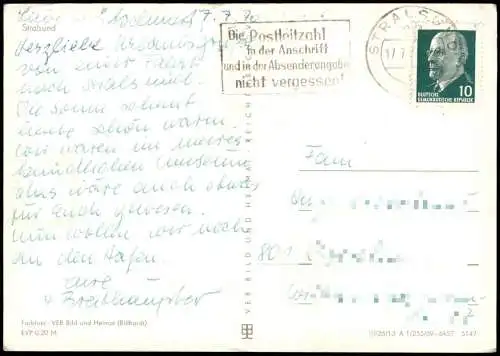 7. 7. 70
Stralsund
Herzliche Urlaubsgrüße
von einer Fahrt
nach Stralsund.
Die Sonne scheint
heute schön warm.
Wir waren im Meeres-
kundlichen Museum,
das wäre auch etwas
für Euch gewesen.
Nun wollen wir noch
an den Hafen.
Eure
Die Postleitzahl
in der Anschrift
und in der Absenderangabe
nicht vergessen!
STRALSUND
17.7.
10
DEUTSCHE
DEMOKRATISCHE REPUBLIK
Fam
801
VEB BILD UND HEIMAT REICHE
Farbfoto: VEB Bild und Heimat (Bildhardt)
EVP 0,20 M
A 1/255/69
5147